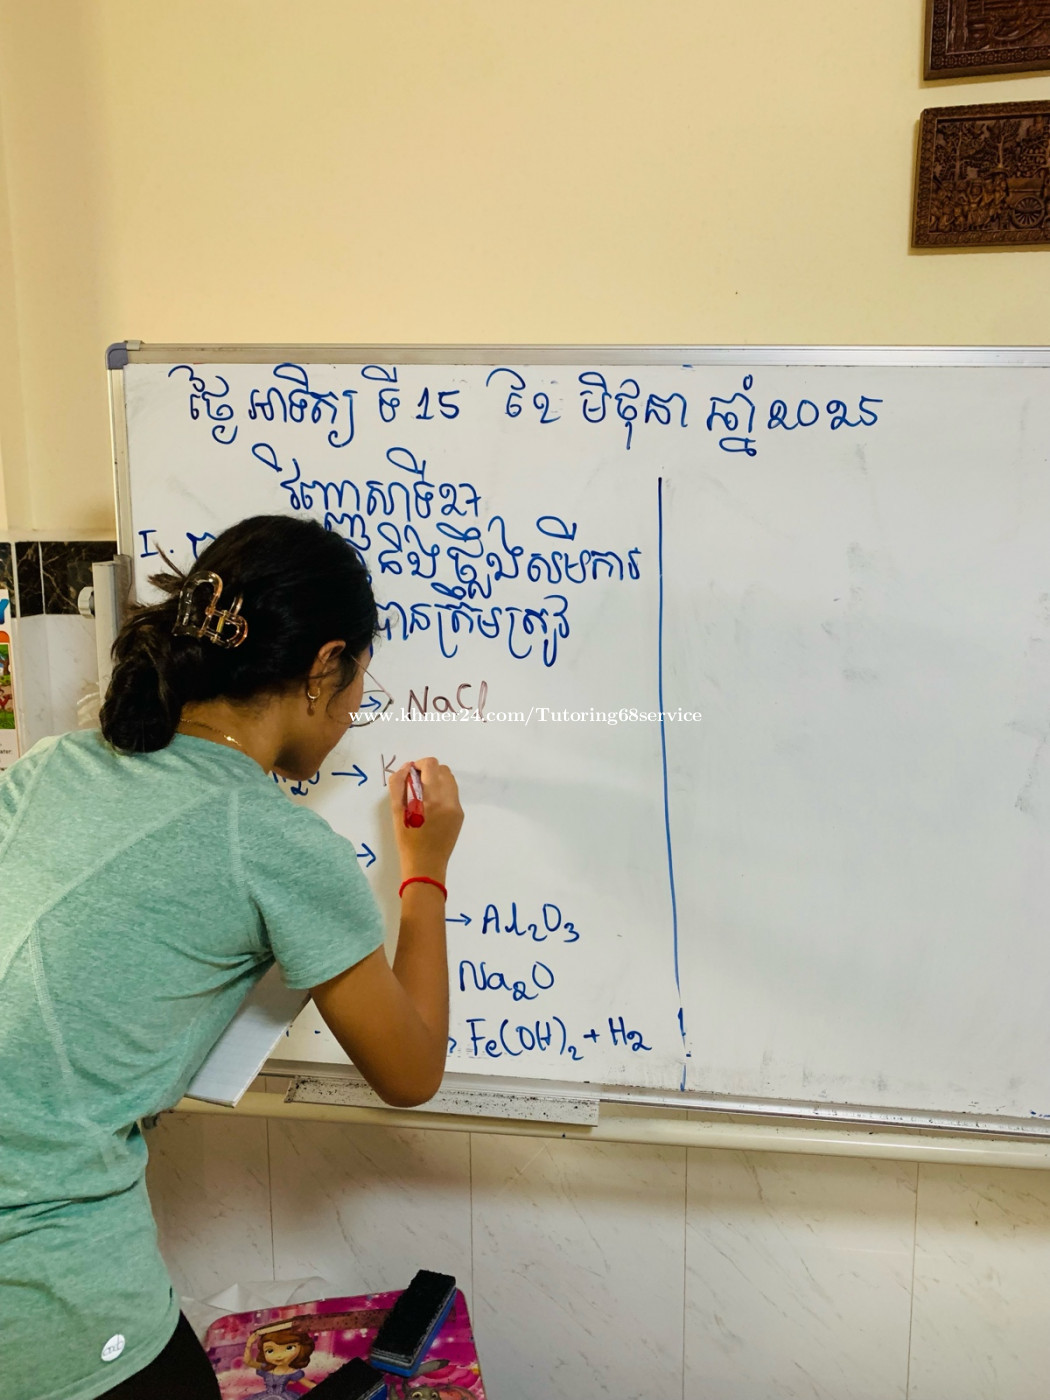 ថ្ងៃ អាទិត្យ ទី 15 ខែ មិថុនា ឆ្នាំ 2025
វិញ្ញាសាទី27
I. និងថ្លឹងសមីការ
បានត្រឹមត្រូវ
→ NaCl
www.khmer24.com/Tutoring68service
→ K
→
→ Al2O3
Na2O
Fe(OH)2 + H2